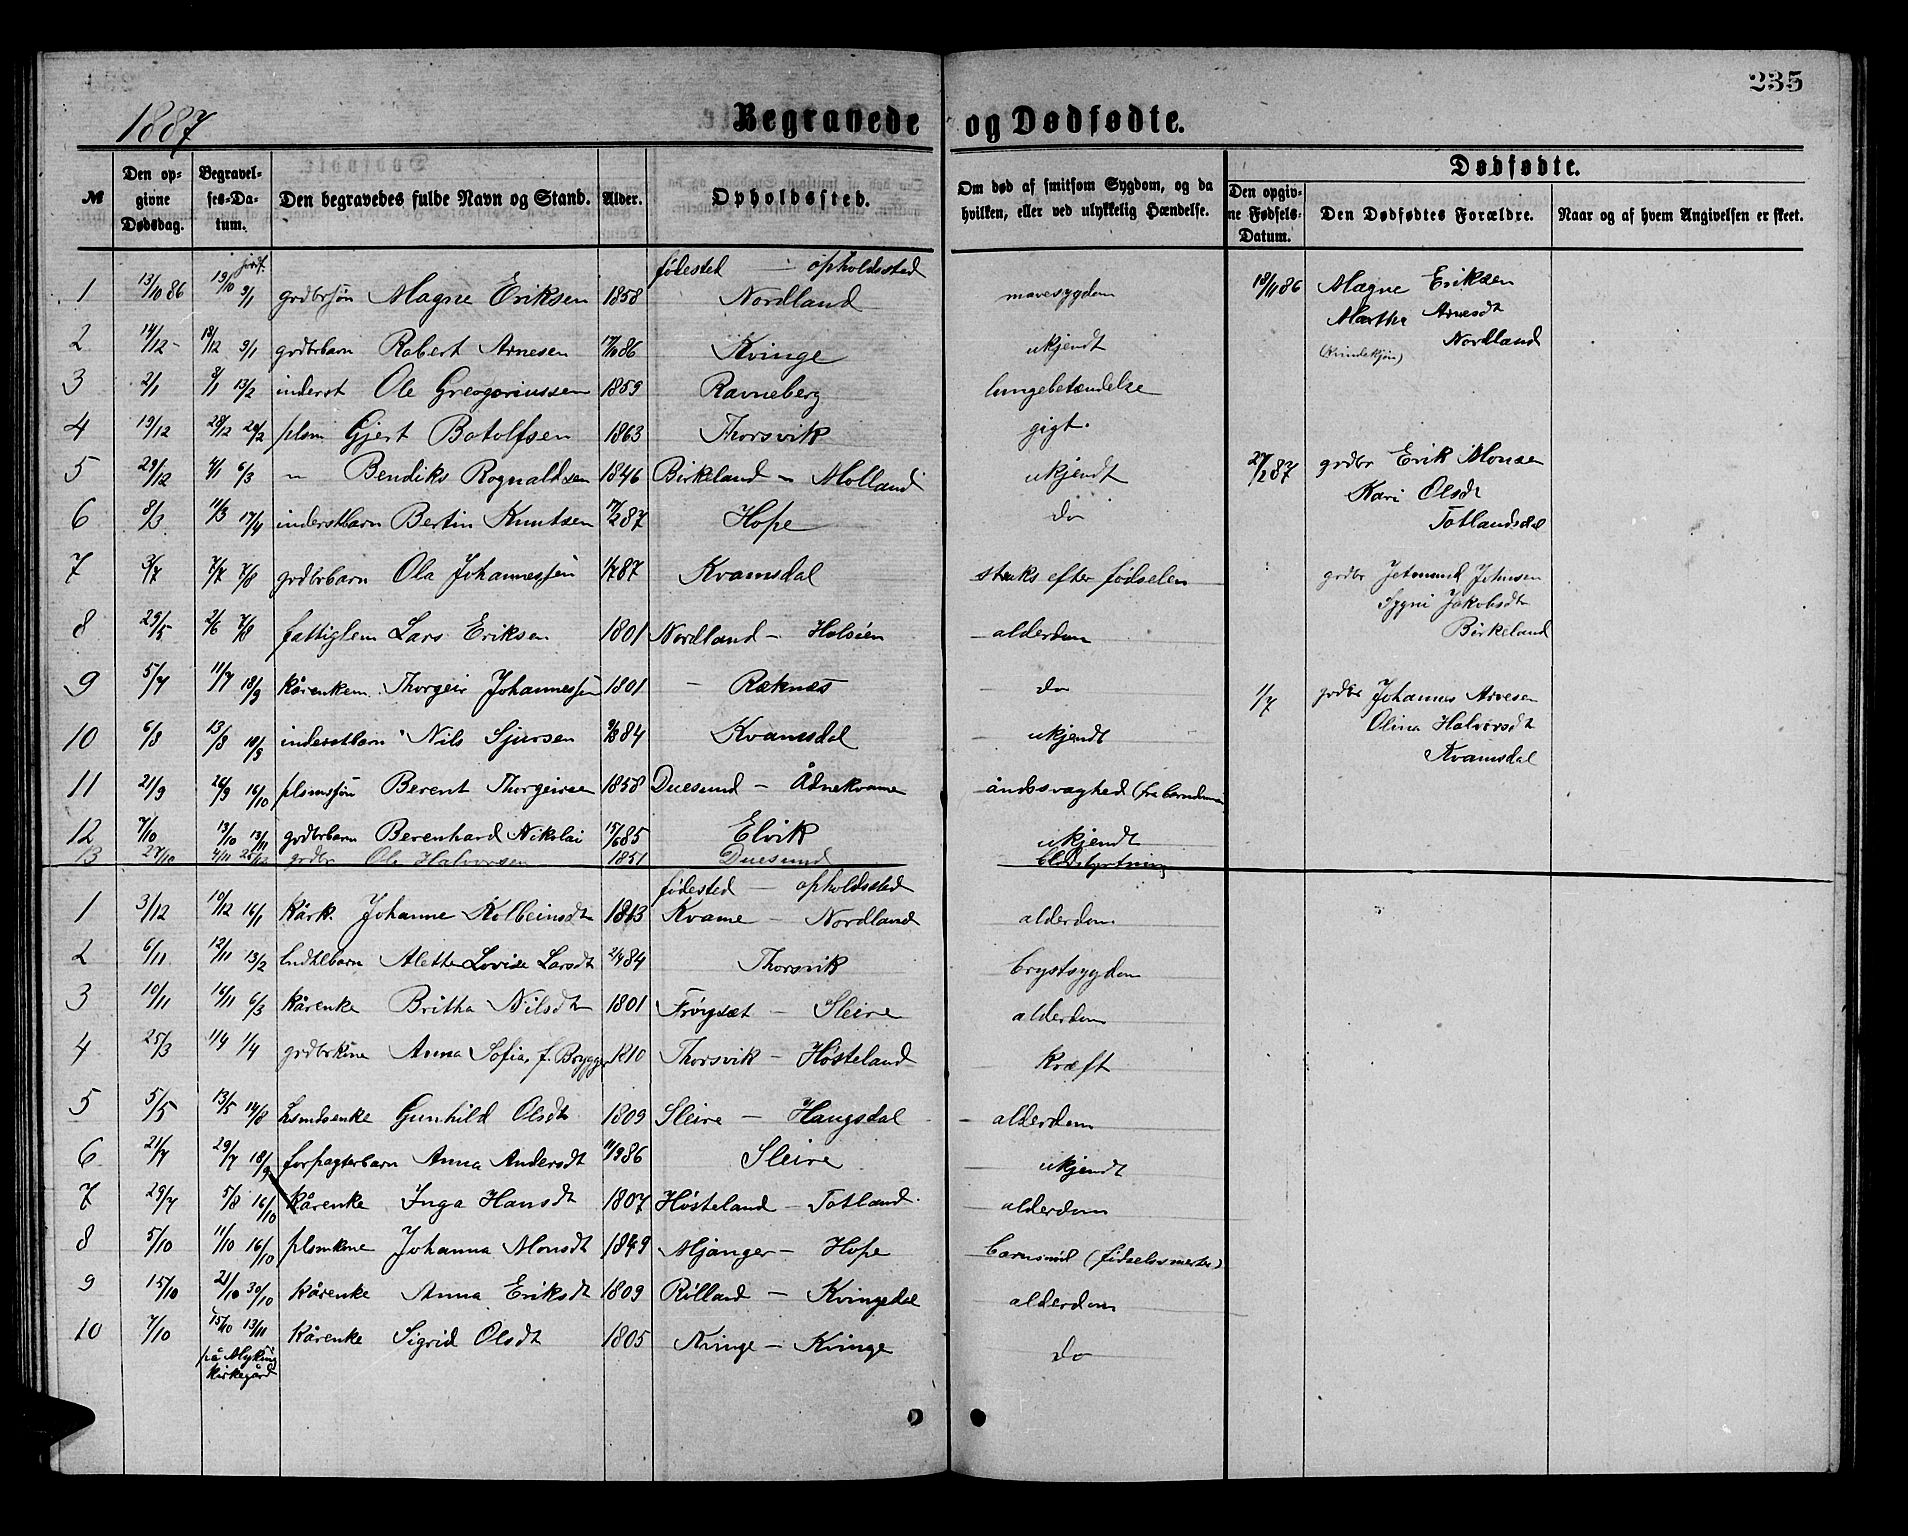 235
1887 Begravede og Dødfødte.
№ Den opgivne Dødsdag. Begravelses-Datum. Den begravedes fulde Navn og Stand. Alder. Opholdssted. Om død af smitsom Sygdom, og da hvilken, eller ved ulykkelig Hændelse. Dødfødte. Den opgivne Fødsels-Datum. Den Dødfødtes Forældre. Naar og af hvem Angivelsen er skeet.
fødested — opholdssted
1 13/10 86 19/10 jordf. 9/1 grdbrsøn Magne Eriksen 1858 Nordland mavesygdom 18/11 86 Magne Eriksen
Martha Arnesdt
Nordland
(Kvindekjøn)
2 14/12 - 18/12 9/1 grdbrbarn Robert Arnesen 17/10 86 Kvinge ukjendt
3 2/1 8/1 13/2 inderst Ole Gregoriussen 1859 Ravneberg lungebetændelse
4 19/12 28/12 20/2 plsm Gjert Botolfsen 1863 Thorsvik gigt.
5 29/12 4/1 6/3 — Bendiks Rognaldsen 1846 Birkeland — Molland ukjendt 27/2 87 grdbr Erik Monsen
Kari Olsdt
Totlandsdal
6 8/3 11/3 17/4 inderstbarn Bertin Knutsen 17/2 87 Hope do
7 3/7 7/7 7/8 grdbrbarn Ola Johannessen 1/7 87 Kvamsdal straks efter fødselen grdbr Jetmund Johnsen
Sygni Jakobsdt
Birkeland
8 29/5 2/6 7/8 fattiglem Lars Eriksen 1801 Nordland — Holsøen alderdom
9 5/7 11/7 18/9 kårenkem. Thorgeir Johannessen 1801 — Reknæs do 1/7 grdbr Johannes Arnesen
Olina Halvorsdt
Kvamsdal
10 6/8 13/8 18/9 inderstbarn Nils Sjursen 9/3 84 Kvamsdal ukjendt
11 21/9 26/9 16/10 plsmsøn Berent Thorgeirsen 1858 Duesund — Ådnekvame åndssvaghed (fra barndommen
12 7/10 13/10 13/11 grdbrbarn Berenhard Nikolai 15/6 85 Elvik ukjendt
13 27/10 4/11 25/12 grdbr Ole Halvorsen 1851 Duesund blodstyrtning
fødested — opholdssted
1 3/12 10/12 16/1 kårk. Johanne Kolbeinsdt 1813 Kvame — Nordland alderdom
2 6/11 12/11 13/2 Aletthe Lovise Larsdt 2/4 84 Thorsvik brystsygdom
3 10/11 16/11 6/3 kårenke Britha Nilsdt 1801 Frøyset — Sleire alderdom
4 25/3 1/4 1/4 grdbrkone Anna Sofia, f. Brygger 1810 Thorsvik — Høsteland kræft
5 5/5 13/5 14/8 hsmdsenke Gunhild Olsdt 1809 Sleire — Haugsdal alderdom
6 21/7 29/7 18/9 forpagterbarn Anna Andersdt 11/9 86 Sleire ukjendt
7 29/7 5/8 16/10 kårenke Inga Hansdt 1807 Høsteland — Totland alderdom
8 5/10 11/10 16/10 plsmkone Johanna Monsdt 1849 Mjanger — Hope barnsnød (fødselssmerter)
9 15/10 21/10 30/10 kårenke Anna Eriksdt 1809 Risland — Kvingedal alderdom
10 7/10 15/10 13/11 kårenke Sigrid Olsdt 1805 Kvinge — Kvinge do
på Myking
kirkegård